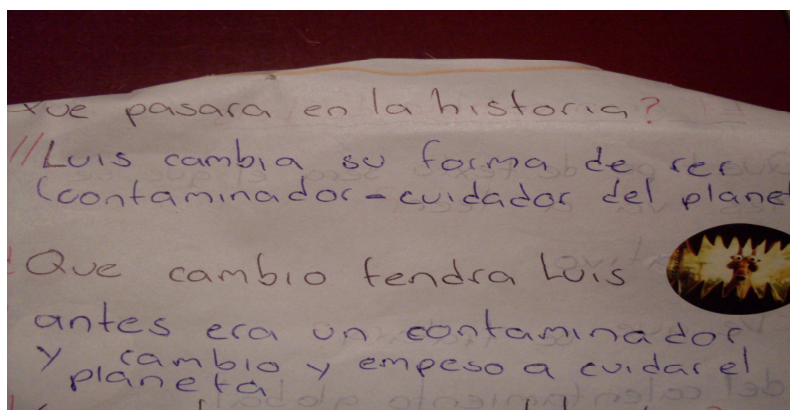 que pasara en la historia?
// Luis cambia su forma de ser
(contaminador - cuidador del planet
Que cambio tendra Luis
antes era un contaminador
y cambio y empeso a cuidar el
planeta